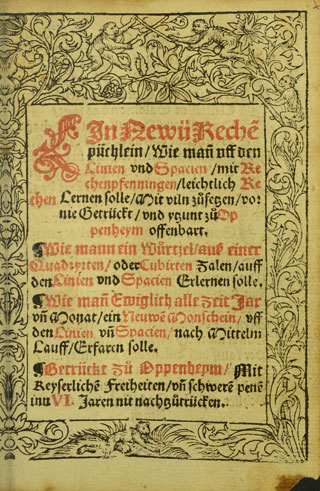 EIn Newü Rechē
püchlein / Wie mañ vff den
Linien vnd Spacien / mit Re
chenpfenningen / leichtlich Re
chen Lernen solle / Mit viln zůsetzen / vor
nie Getrückt / vnd ytzunt zů Op
penheym offenbart.
¶Wie mann ein Würtzel / auß einer
Quadzyten / oder Cubicten Zalen / auff
den Linien vnd Spacien Erlernen solle.
¶Wie mañ Ewiglich alle Zeit Jar
vñ Monat / ein Neuwē Monschein / vff
den Linien vñ Spacien / nach Mittelm
Lauff / Erfarn solle.
¶Getrückt Zů Oppenheym / Mit
Keyserlichē Freiheiten / vñ schwerē penē
inn VI. Jaren nit nachzůtrücken.